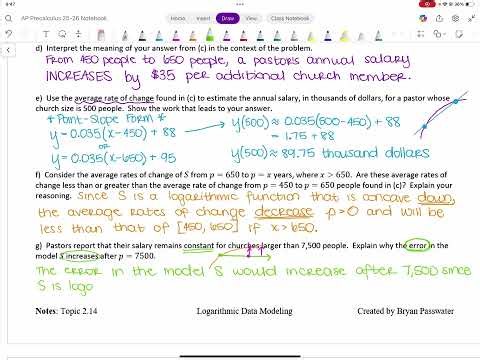 AP Precalculus 25-26 Notebook
Insert
Draw
View
Class Notebook
d) Interpret the meaning of your answer from (c) in the context of the problem.
From 450 people to 650 people, a pastor's annual salary
INCREASES by $35 per additional church member.
e) Use the average rate of change found in (c) to estimate the annual salary, in thousands of dollars, for a pastor whose
church size is 500 people. Show the work that leads to your answer.
* Point-Slope Form *
y = 0.035(x-450) + 88
OR
y = 0.035(x-650) + 95
y(500) ≈ 0.035(500-450) + 88
= 1.75 + 88
y(500) ≈ 89.75 thousand dollars
f) Consider the average rates of change of S from p = 650 to p = x years, where x > 650. Are these average rates of
change less than or greater than the average rate of change from p = 450 to p = 650 people found in (c)? Explain your
reasoning.
Since S is a logarithmic function that is concave down,
the average rates of change decrease p>0 and will be
less than that of [450, 650] if x > 650.
g) Pastors report that their salary remains constant for churches larger than 7,500 people. Explain why the error in the
model S increases after p = 7500.
The error in the model S would increase after 7,500 since
S is loga
Notes: Topic 2.14
Logarithmic Data Modeling
Created by Bryan Passwater